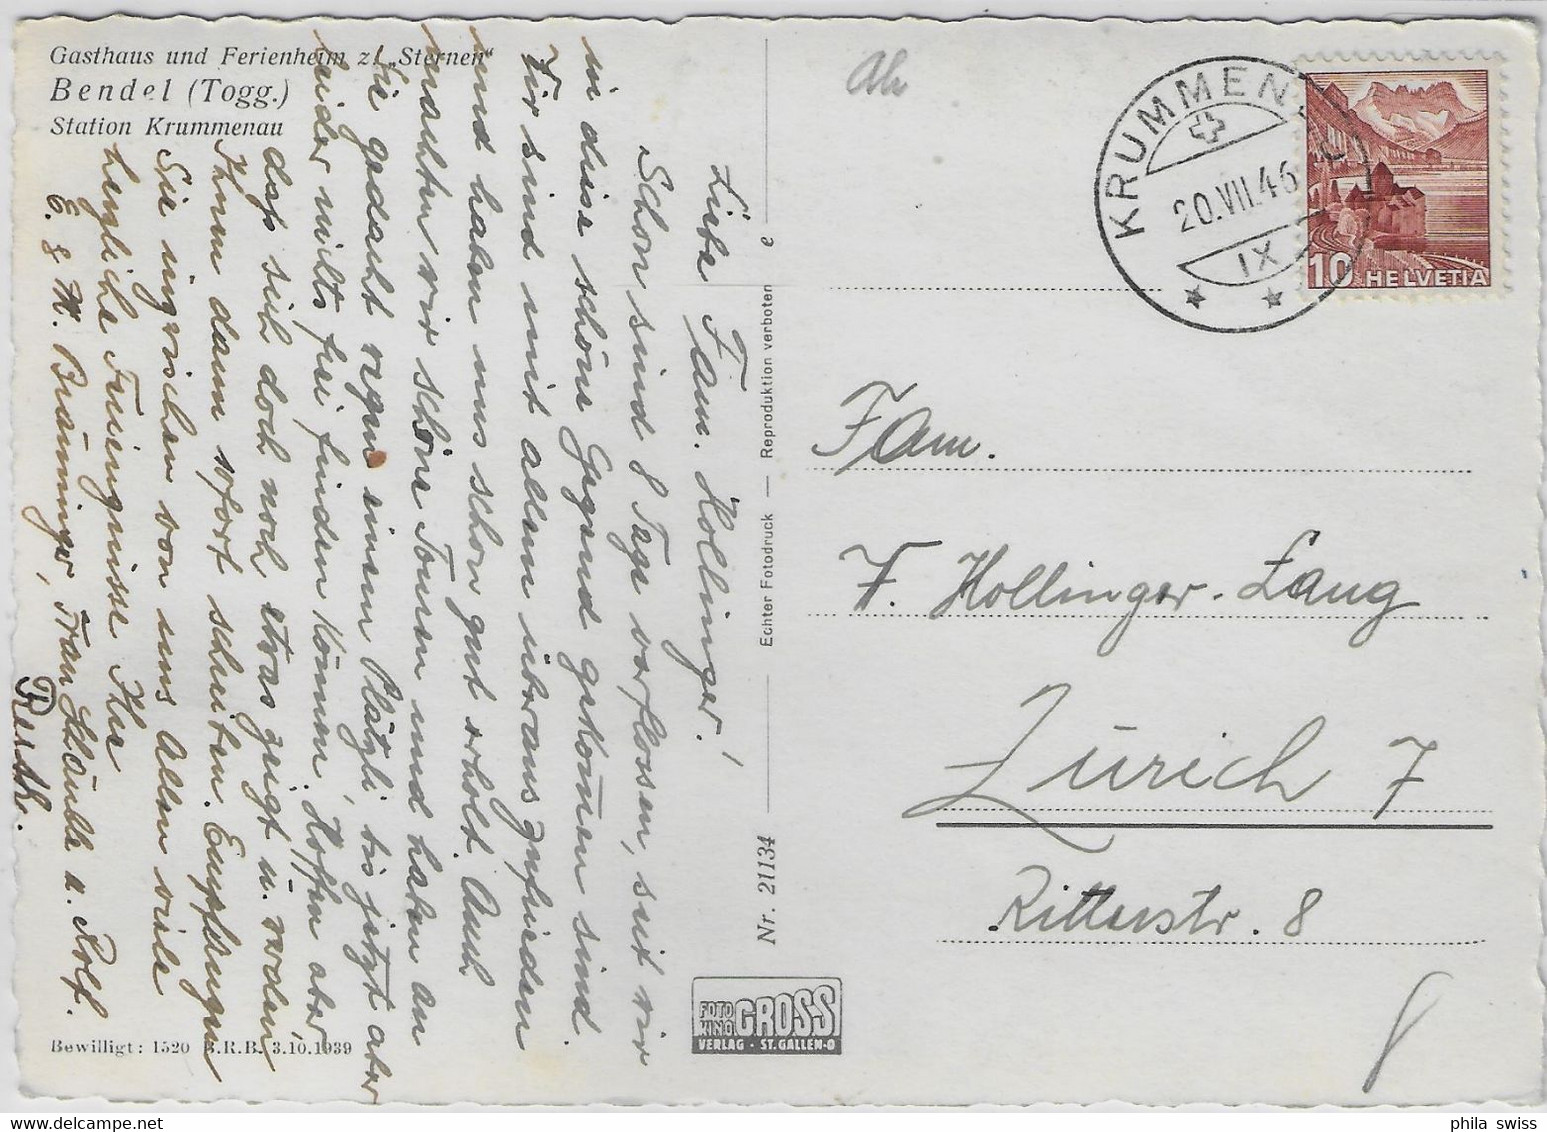 Gasthaus und Ferienheim z. „Sternen"
Bendel (Togg.)
Station Krummenau
Liebe Fam. Hollinger!
Schon sind 8 Tage verflossen, seit wir
in diese schöne Gegend gekom̄en sind.
Wir sind mit allem überaus zufrieden
und haben uns schon gut erholt. Auch
machten wir schöne Touren und haben an
Sie gedacht wegen einem Plätzli, bis jetzt aber
leider nichts frei finden können. Hoffen aber
dass sich doch noch etwas zeigt u. werden
Ihnen dann sofort schreiben. Empfangen
Sie inzwischen von uns Allen viele
herzliche Feriengrüsse Ihre
E. & W. Bräuninger, Frau Schäuble u. Rolf.
Berth.
Bewilligt: 1520 B.R.B. 3.10.1939
Nr. 21134
Echter Fotodruck — Reproduktion verboten
e
FOTO KINO GROSS
VERLAG · ST. GALLEN-O
KRUMMENAU
20.VII.46
IX
10 HELVETIA
Fam.
W. Hollinger-Lang
Zürich 7
Ritterstr. 8
phila swiss